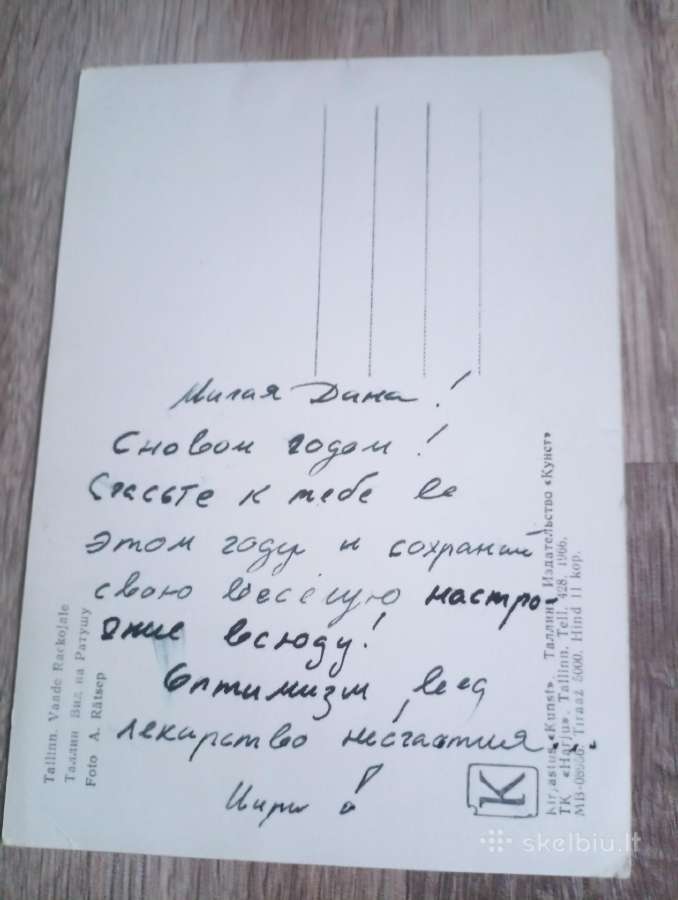 Милая Дана!
С новом годом!
Счасьте к тебе в
этом году и сохраний
свою весёлую настро-
яние всюду!
Оптимизм, вед
лекарство несчастия...
Tallinn. Vaade Raekojale
Таллин Вид на Ратушу
Foto A. Rätsep
Kirjastus «Kunst», Таллин, Издательство «Кунст»
TK «Harju», Tallinn. Tell. 428. 1966.
Tiraaž 5000. Hind 11 kop.
K
skelbiu.lt